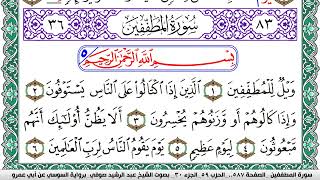 ٣٦ سُورَةُ المُطَفِّفِينَ ٨٣
بِسْمِ اللَّهِ الرَّحْمَٰنِ الرَّحِيمِ
وَيْلٌ لِّلْمُطَفِّفِينَ ١ الَّذِينَ إِذَا اكْتَالُوا عَلَى النَّاسِ يَسْتَوْفُونَ ٢
وَإِذَا كَالُوهُمْ أَو وَّزَنُوهُمْ يُخْسِرُونَ ٣ أَلَا يَظُنُّ أُولَٰئِكَ أَنَّهُم
مَّبْعُوثُونَ ٤ لِيَوْمٍ عَظِيمٍ ٥ يَوْمَ يَقُومُ النَّاسُ لِرَبِّ الْعَالَمِينَ ٦
سورة المطففين . الصفحة ٥٨٧ .. الحزب ٥٩ . الجزء ٣٠ . بصوت الشيخ عبد الرشيد صوفي . برواية السوسي عن أبي عمرو